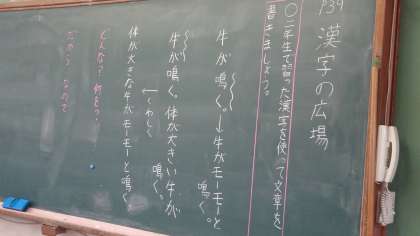 P39 漢字の広場
○二年生で習った漢字を使って文章を
書きましょう。
牛が鳴く。→牛がモーモーと
鳴く。
牛が鳴く。体が大きい牛が
鳴く。
←くわしく
体が大きな牛がモーモーと鳴く。
どんな? 何を?
だから なので